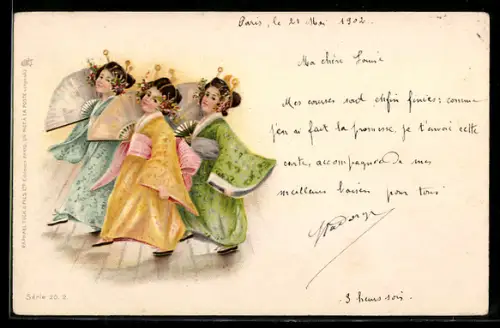 Paris, le 21 Mai 1902.
Ma chère Louise
Mes courses sont enfin finies; comme
j'en ai fait la promesse, je t'envoie cette
carte, accompagnée de mes
meilleurs baisers pour tous
3 heures soir.
RAPHAEL TUCK & FILS
Série 20. 2.